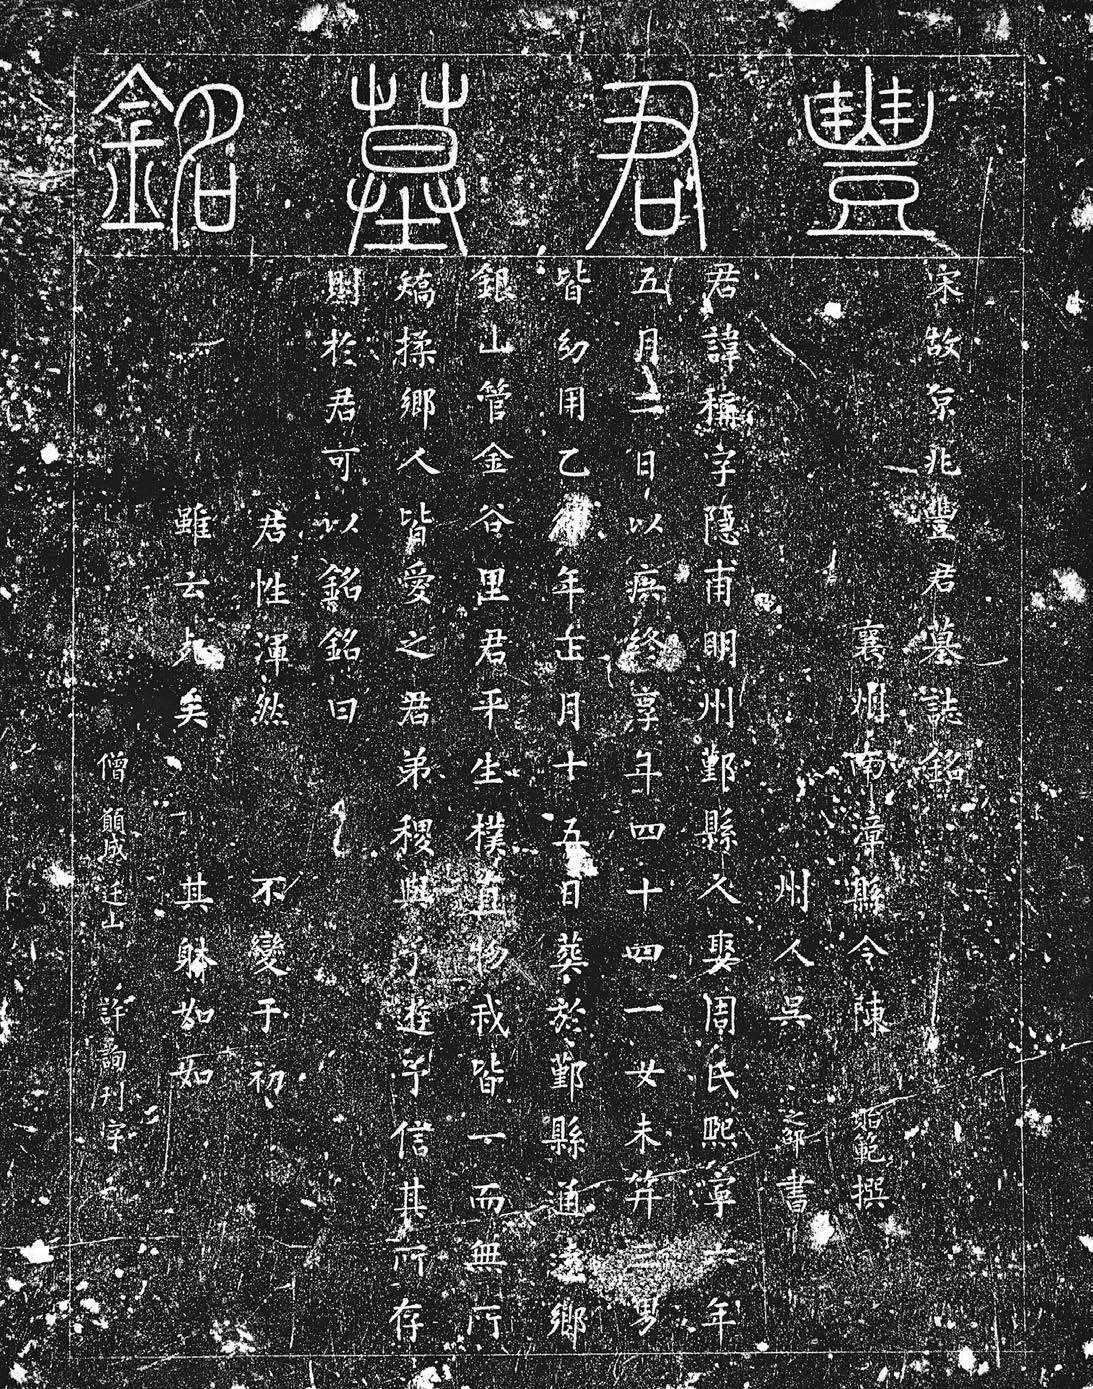 豐君墓銘
宋故京兆豐君墓誌銘
襄州南漳縣令陳貽範撰
州人吳之邵書
君諱稱字隱甫明州鄞縣人娶周氏熙寧六年
五月二日以疾終享年四十四一女未笄三男
皆幼用乙年正月十五日葬於鄞縣通遠鄉
銀山管金谷里君平生樸直物我皆一而無所
矯揉鄉人皆愛之君弟稷與予遊予信其所存
則於君可以銘銘曰
君性渾然 不變于初
雖云死矣 其躰如如
僧願成迁山 許詢刊字